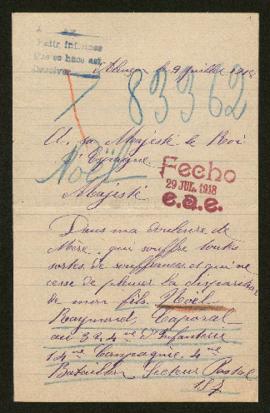 Petir informes
que se hace así
9 Juillet 1918
83362
A sa Majesté le Roi
d'Espagne
Noël
Fecho
29 JUL. 1918
e.a.e.
Majesté
Dans ma douleur de
Mère qui souffre toutes
sortes de souffrances et qui ne
cesse de pleurer la disparition
de mon fils Noël
Raymond, Caporal
au 324me d'Infanterie
14me Compagnie, 4me
Bataillon Secteur Postal
187